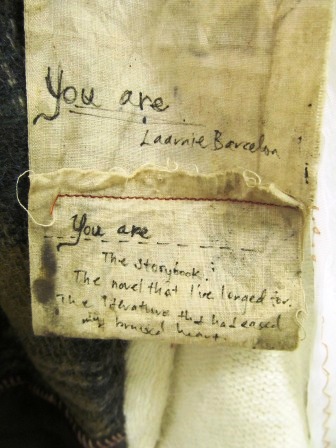 You are
Laarnie Barcelon
You are
The storybook.
The novel that I've longed for.
The literature that has eased
my bruised heart.